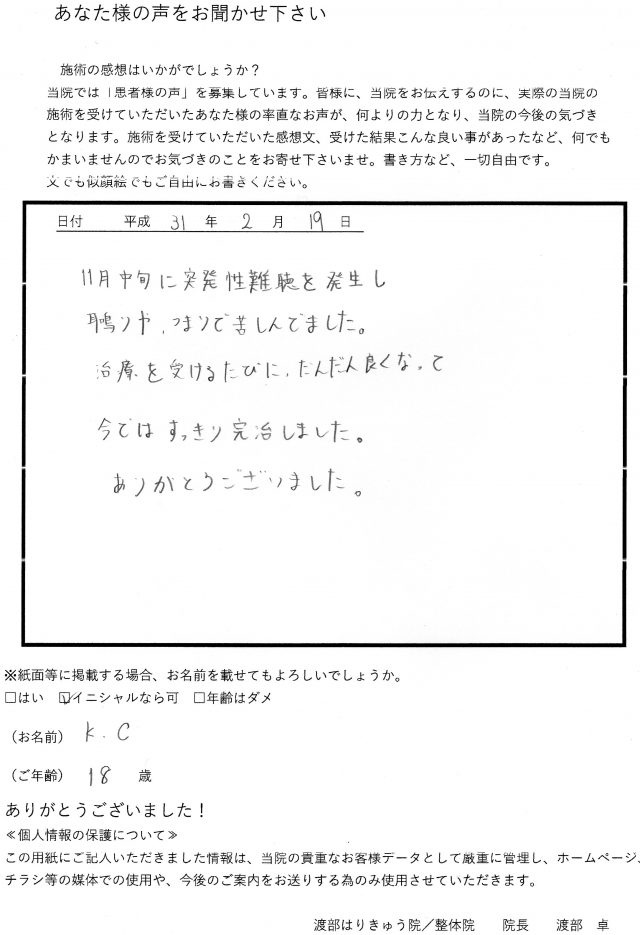 あなた様の声をお聞かせ下さい
施術の感想はいかがでしょうか？
当院では「患者様の声」を募集しています。皆様に、当院をお伝えするのに、実際の当院の
施術を受けていただいたあなた様の率直なお声が、何よりの力となり、当院の今後の気づき
となります。施術を受けていただいた感想文、受けた結果こんな良い事があったなど、何でも
かまいませんのでお気づきのことをお寄せ下さいませ。書き方など、一切自由です。
文でも似顔絵でもご自由にお書きください。
日付 平成 31 年 2 月 19 日
11月中旬に突発性難聴を発生し
鳴りや、つまりで苦しんでました。
治療を受けるたびに、だんだん良くなって
今ではすっきり完治しました。
ありがとうございました。
※紙面等に掲載する場合、お名前を載せてもよろしいでしょうか。
□はい ☑イニシャルなら可 □年齢はダメ
（お名前） K.C
（ご年齢） 18 歳
ありがとうございました！
≪個人情報の保護について≫
この用紙にご記入いただきました情報は、当院の貴重なお客様データとして厳重に管理し、ホームページ、
チラシ等の媒体での使用や、今後のご案内をお送りする為のみ使用させていただきます。
渡部はりきゅう院／整体院 院長 渡部 卓